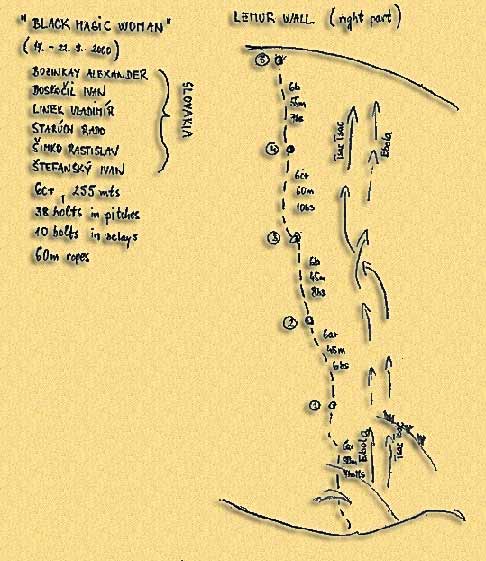 "BLACK MAGIC WOMAN"
(17. - 22. 9. 2000)
BUZINKAY ALEXANDER
DOSKOČIL IVAN
LINEK VLADIMÍR
STARÚCH RADO
ŠIMKO RASTISLAV
ŠTEFANSKÝ IVAN
SLOVAKIA
6c+, 255 mts
38 bolts in pitches
10 bolts in belays
60m ropes
LEMUR WALL (right part)
5
6b
55m
4
6c+
60m
10bs
3
6b
45m
8bs
2
6a+
45m
6bs
1
bolts
Tsac Tsac
Ebola
Ebola
Tsac Tsac